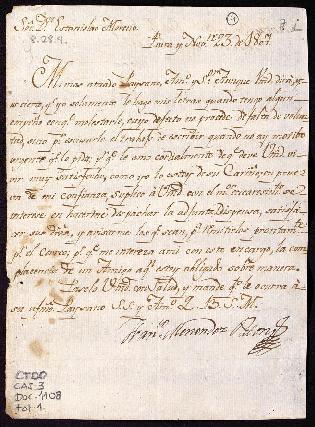 Sor. Dn. Estanislao Moreno
8.28.4.
Piura y Nove. 23 de 1807
Mi mas amado Paysano, Amo. y Sor. aunque Vmd. dirá, y
es cierto, qe. yo solamente le hago mis letras quando tengo algun
empeño con qe. molestarle, cuyo defecto no procede de falta de volun
tad, sino pr. escusarle el trabajo de escribir quando no ay motivo
urgente qe. lo pida; y qe. le amo cordialmente de qe. deve Vmd. vi
vir muy satisfecho, como yo lo estoy de su Cariño; en prue
va de mi confianza, suplico á Vmd. con el mor. encarecimto. se
interese en hacerme despachar la adjunta dispensa, satisfa
cer sus dros., y avisarme los qe. sean, pa. remitirlos prontamte.
pr. el Correo, pr. qe. me interesa arto con este encargo, la com
placencia de un Amigo aqn. estoy obligado sobre manera.
Páselo Vmd. con salud, y mande qe. le ocurra á
su afmo. Paysano S.S. y Amo. Q. B. S. M.
Franco. Menendez
CTDO
CAJ. 3
Doc. 1108
fol. 1